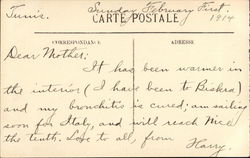 Tunis.
Sunday February First.
1914
CARTE POSTALE
CORRESPONDANCE
ADRESSE
Dear Mother:
It has been warmer in
the interior (I have been to Biskra)
and my bronchitis is cured; am sailing
soon for Italy, and will reach Nice
the tenth. Love to all, from
Harry.